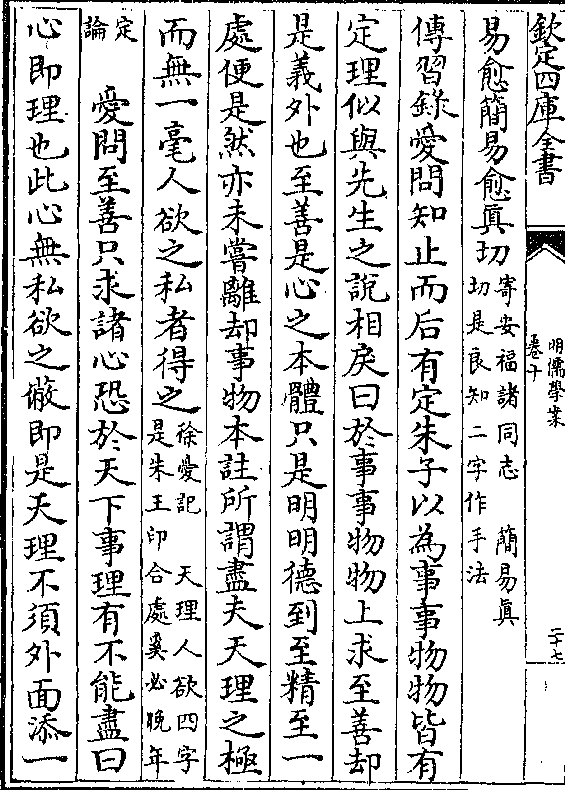 欽定四庫全書
明儒學案
卷十
二十七
易愈簡易愈真切
寄安福諸同志 簡易真
切是良知二字作手法
傳習錄愛問知止而后有定朱子以為事事物物皆有
定理似與先生之說相戾曰於事事物物上求至善却
是義外也至善是心之本體只是明明德到至精至一
處便是然亦未嘗離却事物本註所謂盡夫天理之極
而無一毫人欲之私者得之
徐愛記 天理人欲四字
是朱王印合處奚必晚年
定
論
愛問至善只求諸心恐於天下事理有不能盡曰
心即理也此心無私欲之蔽即是天理不須外面添一